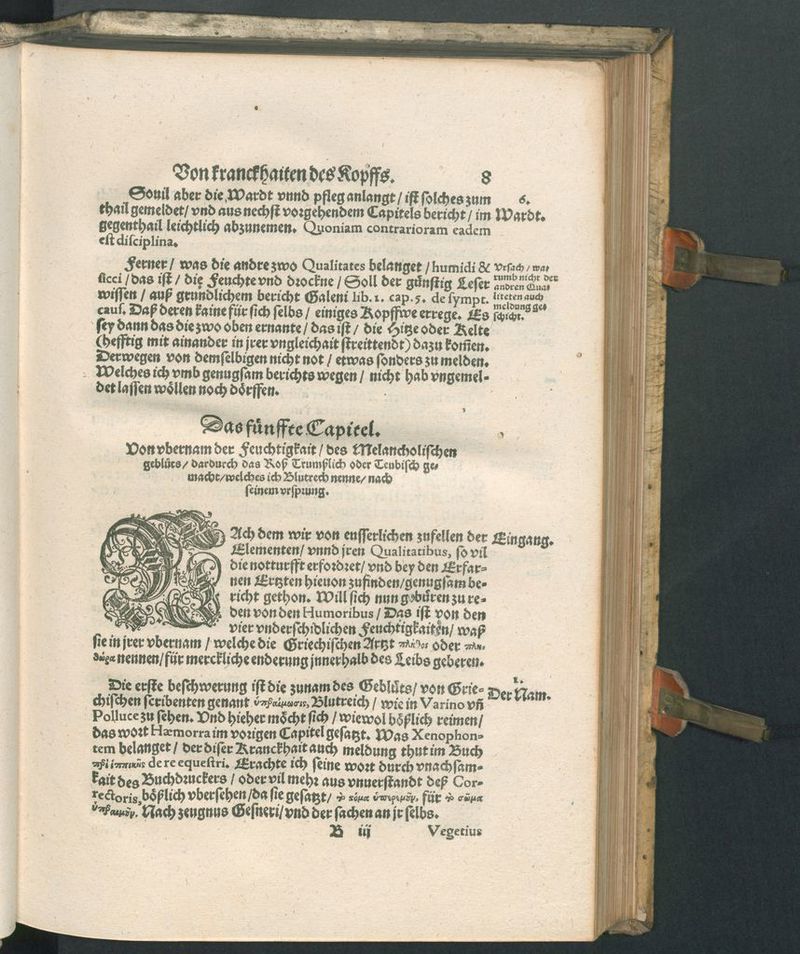 Von kranckhaiten des Kopffs. 8
Souil aber die Wardt vnnd pfleg anlangt / ist solches zum
thail gemeldet / vnd aus nechst vorgehendem Capitels bericht / im
gegenthail leichtlich abzunemen. Quoniam contrarioram eadem
est disciplina.
6.
Wardt.
Ferner / was die andre zwo Qualitates belanget / humidi &
sicci / das ist / die Feuchte vnd drockne / Soll der günstig Leser
wissen / auß grundlichem bericht Galeni lib. 1. cap. 5. de sympt.
caus. Daß deren kaine für sich selbs / einiges Kopffwe errege. Es
sey dann das die zwo oben ernante / das ist / die Hitze oder Kelte
(hefftig mit ainander in jrer vngleichait streittendt) dazu kom̃en.
Derwegen von demselbigen nicht not / etwas sonders zu melden.
Welches ich vmb genugsam berichts wegen / nicht hab vngemel-
det lassen wöllen noch dörffen.
Vrsach / war
rumb nicht der
andren Qua-
liteten auch
meldung ge-
schicht.
Das fünffte Capitel.
Von vbernam der Feuchtigkait / des Melancholischen
geblüts / dardurch das Roß Trumßlich oder Teubisch ge-
macht / welches ich Blutrech nenne / nach
seinem vrsprung.
NAch dem wir von eusserlichen zufellen der
Elementen / vnnd jren Qualitatibus, so vil
die notturfft erfordret / vnd bey den Erfar-
nen Ertzten hieuon zufinden / genugsam be-
richt gethon. Will sich nun gebüren zu re-
den von den Humoribus / Das ist von den
vier vnderschidlichen Feuchtigkaiten / waß
sie in jrer vbernam / welche die Griechischen Artzt πλῆθος oder
nennen / für merckliche enderung jnnerhalb des Leibs geberen.
Eingang.
Die erste beschwerung ist die zunam des Geblüts / von Grie-
chischen scribenten genant ὑπεραίμωσις, Blutreich / wie in Varino vñ
Polluce zu sehen. Vnd hieher möcht sich / wiewol bößlich reimen /
das wort Hæmorra im vorigen Capitel gesatzt. Was Xenophon-
tem belanget / der diser Kranckhait auch meldung thut im Buch
περὶ ἱππικῆς de re equestri. Erachte ich seine wort durch vnachsam-
kait des Buchdruckers / oder vil mehr aus vnuerstandt deß Cor-
rectoris, bößlich vbersehen / da sie gesatzt / für
Nach zeugnus Gesneri / vnd der sachen an jr selbs.
1.
Der Nam.
B iij Vegetius